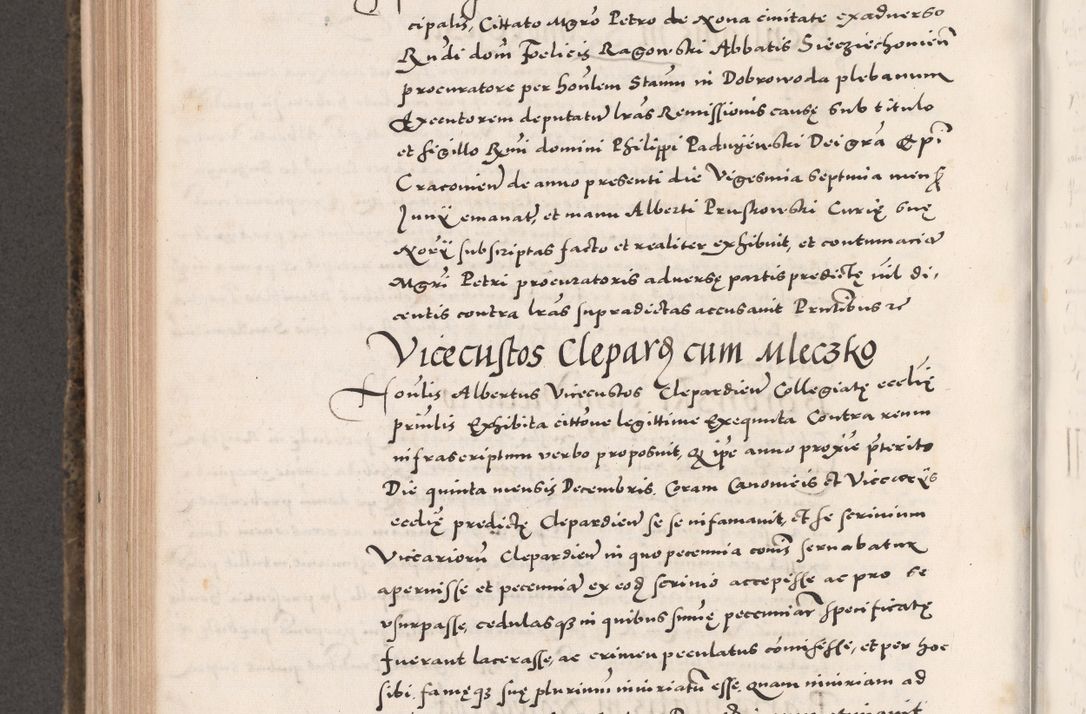 cipalis, Cittato Mgro Petro de Nova civitate ex adverso
Rndi dom̄ Foelicis Ragowski Abbatis Siecziechovien̄
procuratore per honlem Stanm in Dobrowoda plebanum
Executorem deputatu lras Remissionis causę sub titulo
et sigillo Rmi domini Philippi Padnijewski Dei gra Epi
Cracovien de anno presenti die vigesima septima mensis
Junij emanat, et manu Alberti Pruskowski Curię suę
Norij subscriptas facto et realiter exhibuit, et contumacia
Mgri Petri procuratoris adversę partis predictę nil di,
centis contra lras supradictas accusavit Prntibus etc
Vicecustos Clepard cum Mleczko
Honlis Albertus Vicecustos Clepardien Collegiatę ecclię
prinlis Exhibita cittone legittime Exequuta Contra reum
infrascriptum verbo proposuit, Q ipe anno proxie pterito
Die quinta mensis Decembris, Coram Canonicis et Vicearijs
ecclię predictę Clepardien se se infamavit, et se scrinium
Viceariorū Clepardien in quo pecunia comīs servabatur
aperuisse et pecunia ex eod scrinio accepisse ac pro se
usurpasse, cedulasq in quibus sumę pecuniar specificatę
fuerant lacerasse, ac crimen peculatus comisisse, et per hoc
sibi famęq suę plurimum iniuriatū esse, Quam iniuriam ad